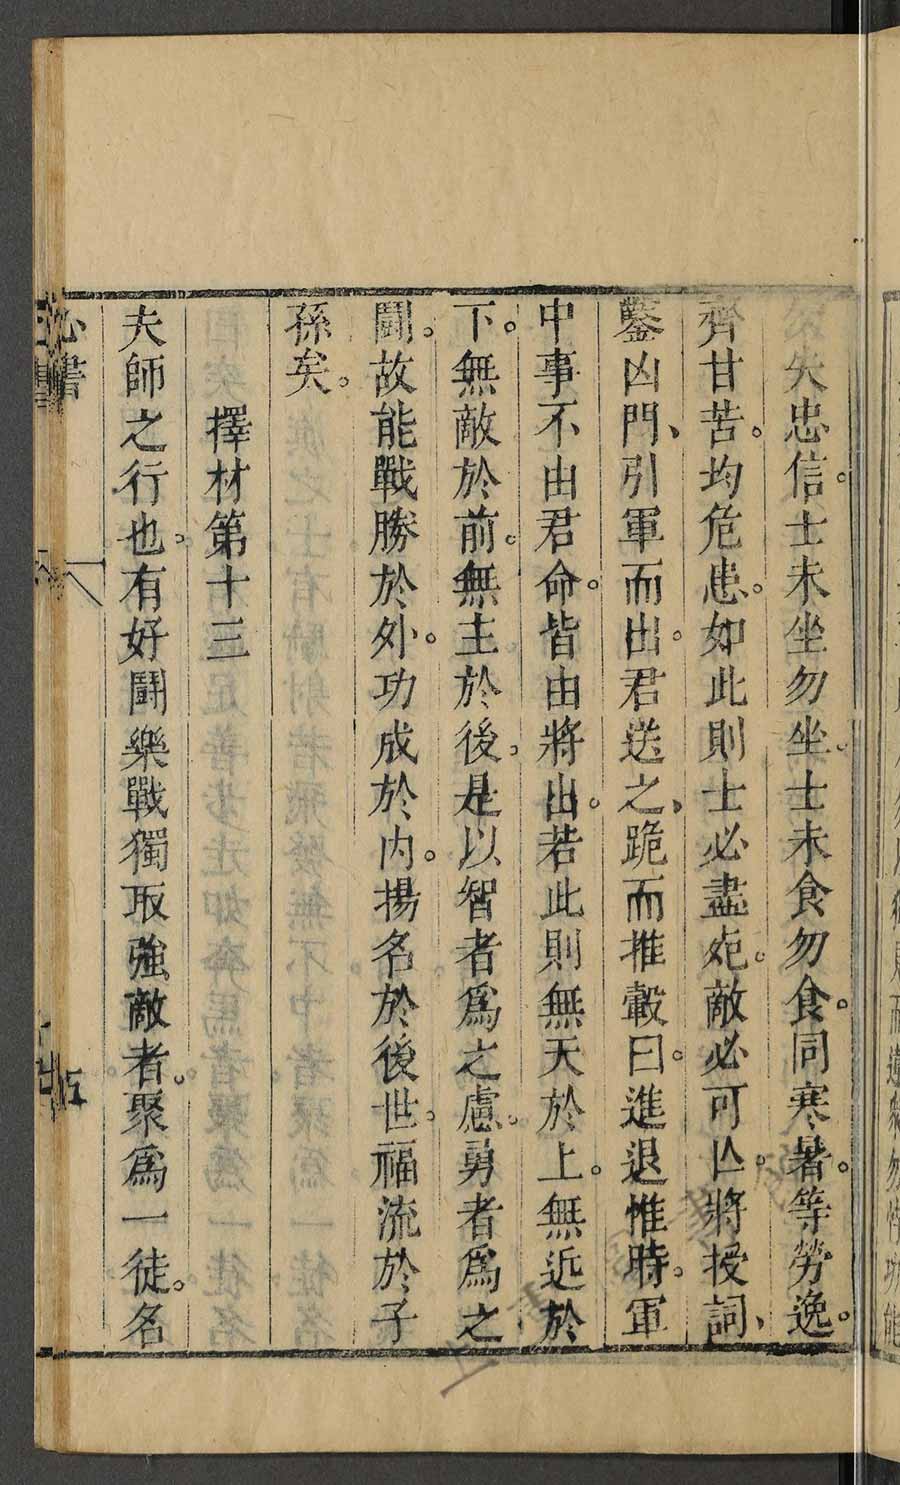 失忠信。士未坐勿坐。士未食勿食。同寒暑。等勞逸。
齊甘苦。均危患。如此則士必盡死。敵必可亾。將授詞、
鑿凶門、引軍而出。君送之、跪而推轂曰。進退惟時。軍
中事不由君命。皆由將出。若此則無天於上。無近於
下。無敵於前。無主於後。是以智者爲之慮。勇者爲之
鬬。故能戰勝於外。功成於內。揚名於後世。福流於子
孫矣。
擇材第十三
夫師之行也。有好鬬樂戰獨取強敵者。聚爲一徒。名
心書